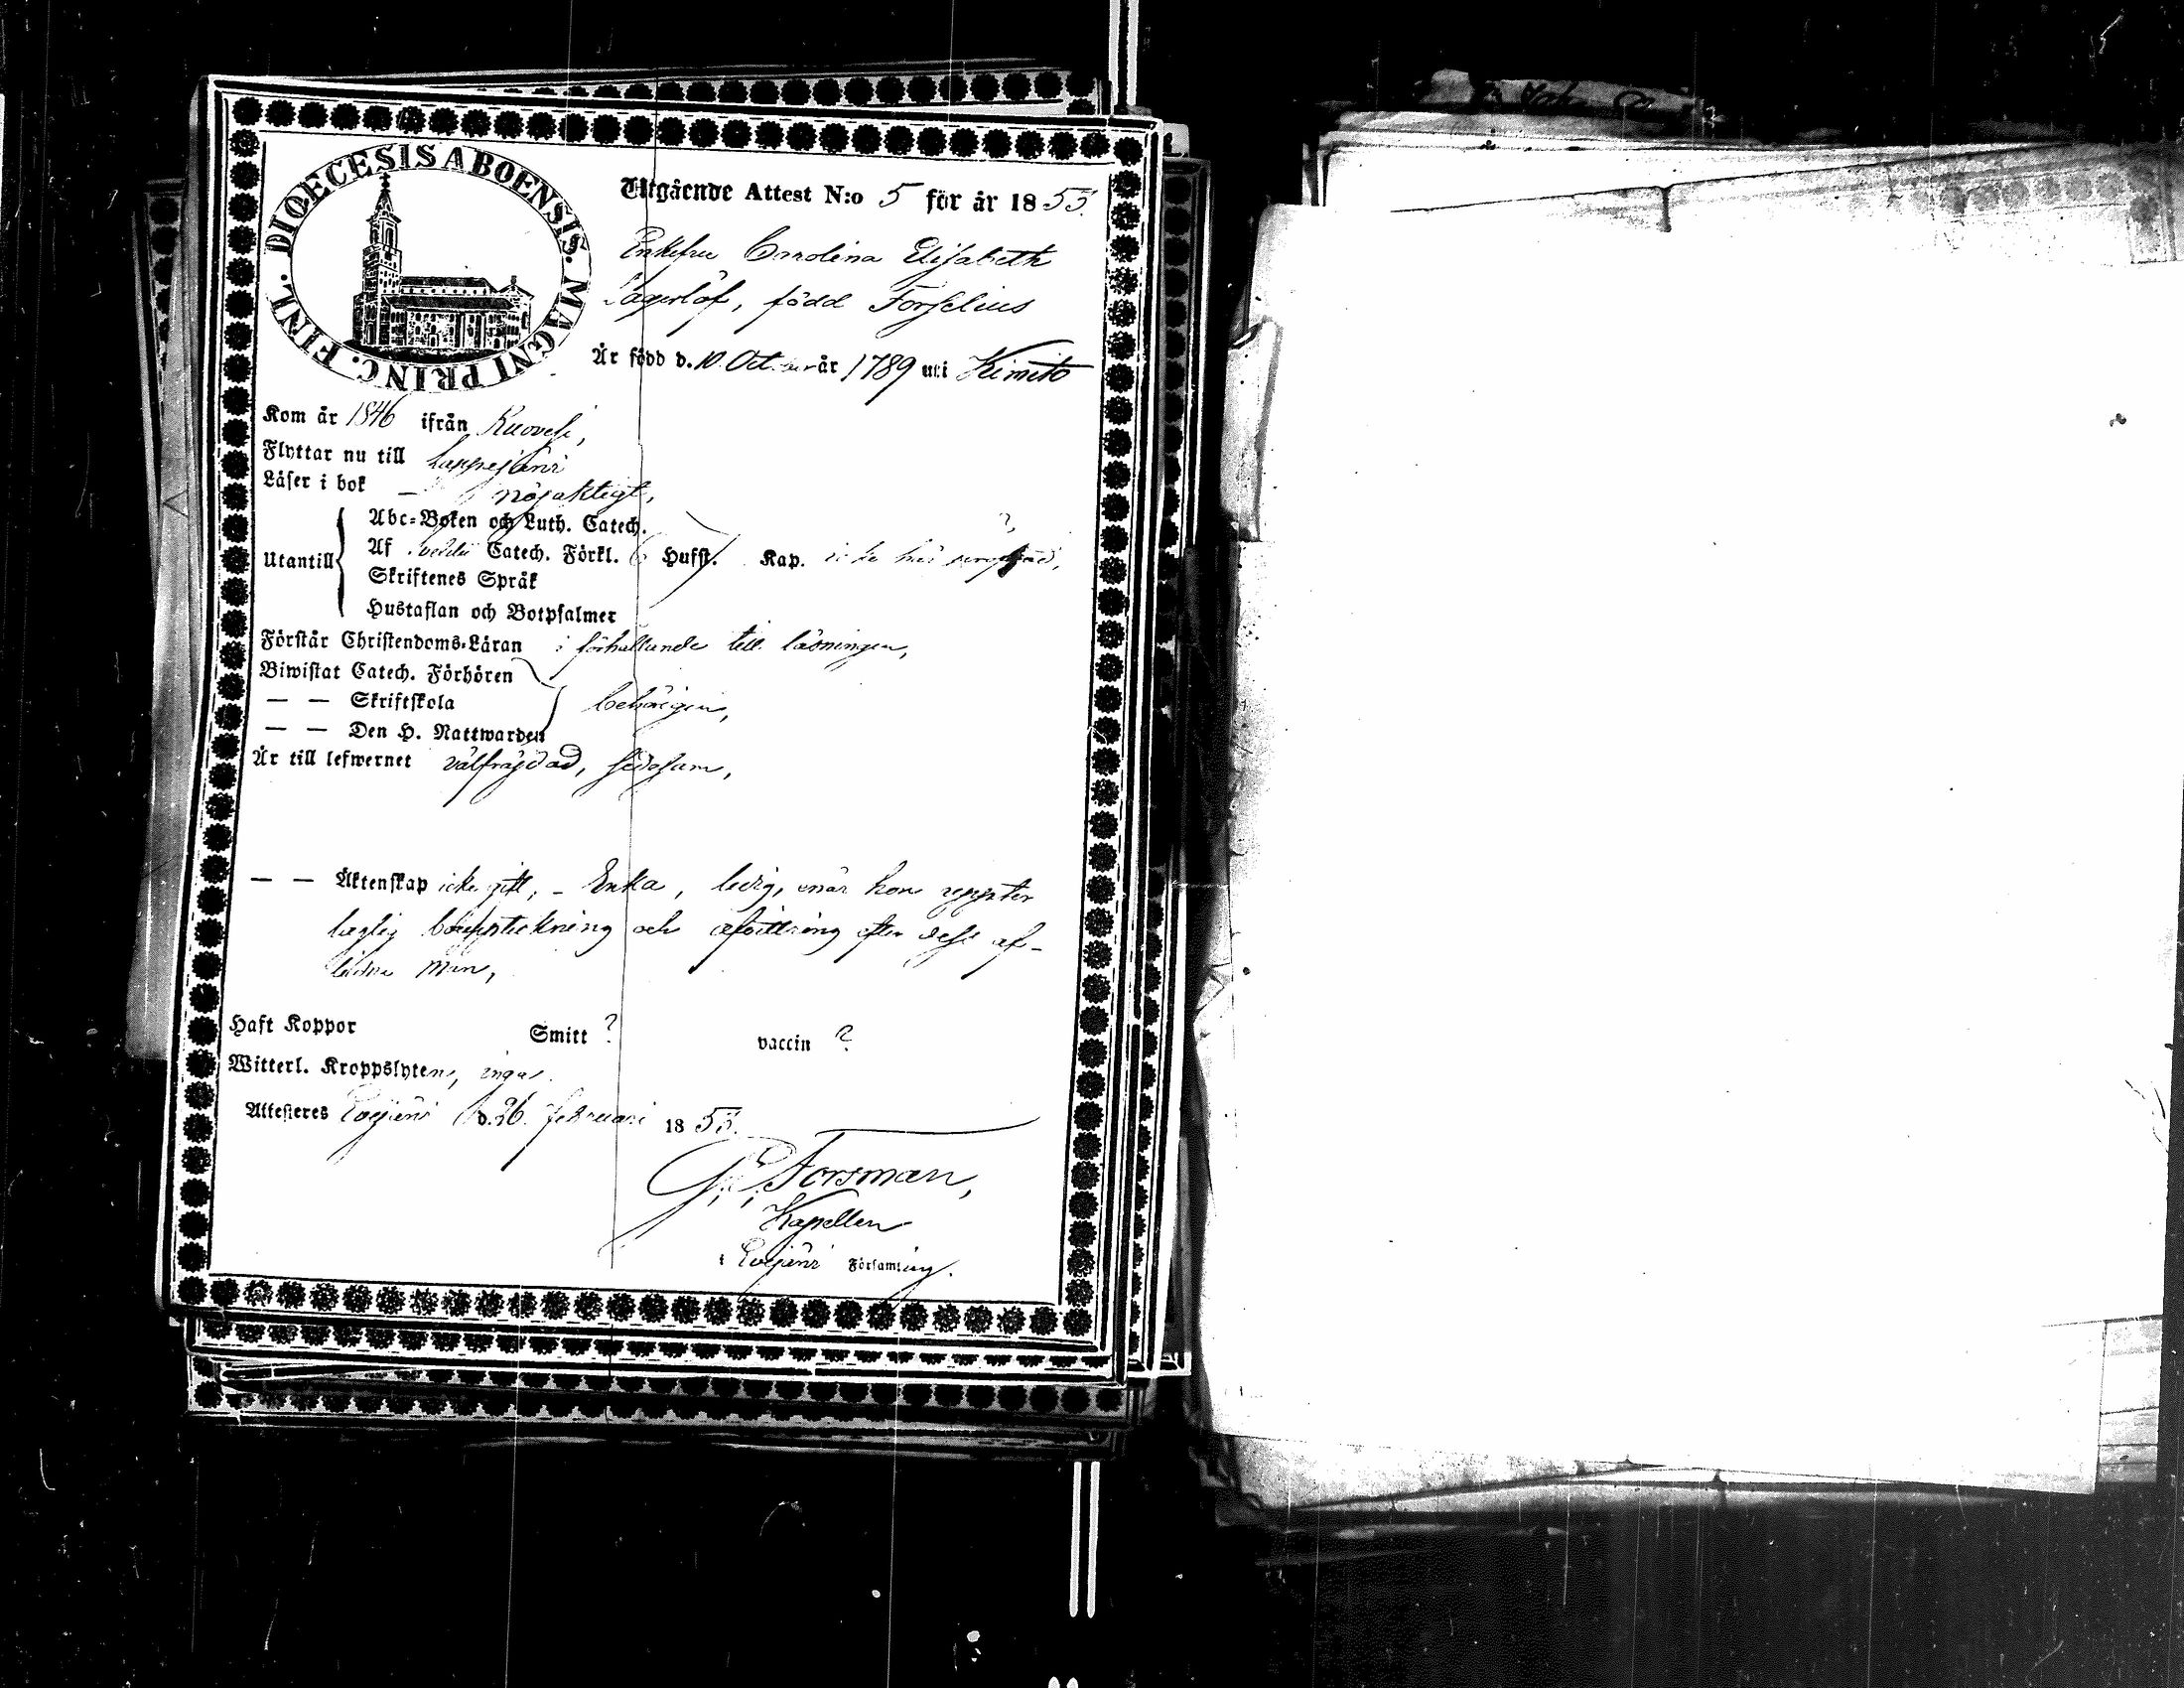 DIOECESIS ABOENSIS. MAGNI PRINC. FINL.
Utgående Attest N:o 5 för år 1855.
Enkefru Carolina Elisabeth
Lagerlöf, född Forselius
Är född d. 10 Oct. år 1789 uti Kimito
Kom år 1846 ifrån Ruovesi,
Flyttar nu till Lappajärvi
Läser i bok — nöjaktigt,
Utantill
Abc-Boken och Luth. Catech.
Af Svebelii Catech. Förkl. 6 Hufst. Kap. icke hos
Skriftenes Språk
Hustaflan och Botpsalmer
Förstår Christendoms-Läran i förhållande till läsningen,
Biwistat Catech. Förhören
— — Skriftskola behörigen,
— — Den H. Nattwarden
Är till lefwernet välfrägdad, sedesam,
— — Äktenskap icke gift, - Enka, ledig, när hon uppter
laglig bouppteckning och afvittring efter dess af-
lidne man,
Haft Koppor Smitt ? vaccin ?
Witterl. Kroppslyten, inga.
Attesteres Evijärvi d. 26. februari 1855.
Forsman,
Kapellan
i Evijärvi Församling.